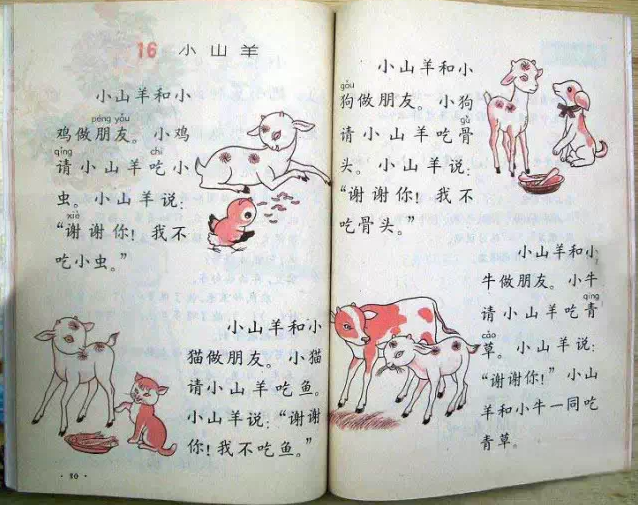 16 小山羊
小山羊和小
péng yǒu
鸡做朋友。小鸡
qǐng chī
请小山羊吃小
虫。小山羊说：
xiè
“谢谢你！我不
吃小虫。”
小山羊和小
猫做朋友。小猫
请小山羊吃鱼。
小山羊说：“谢谢
你！我不吃鱼。”
·80·
小山羊和小
gǒu
狗做朋友。小狗
gǔ
请小山羊吃骨
头。小山羊说：
“谢谢你！我不
吃骨头。”
小山羊和小
牛做朋友。小牛
qīng
请小山羊吃青
cǎo
草。小山羊说：
“谢谢你！”小山
羊和小牛一同吃
青草。